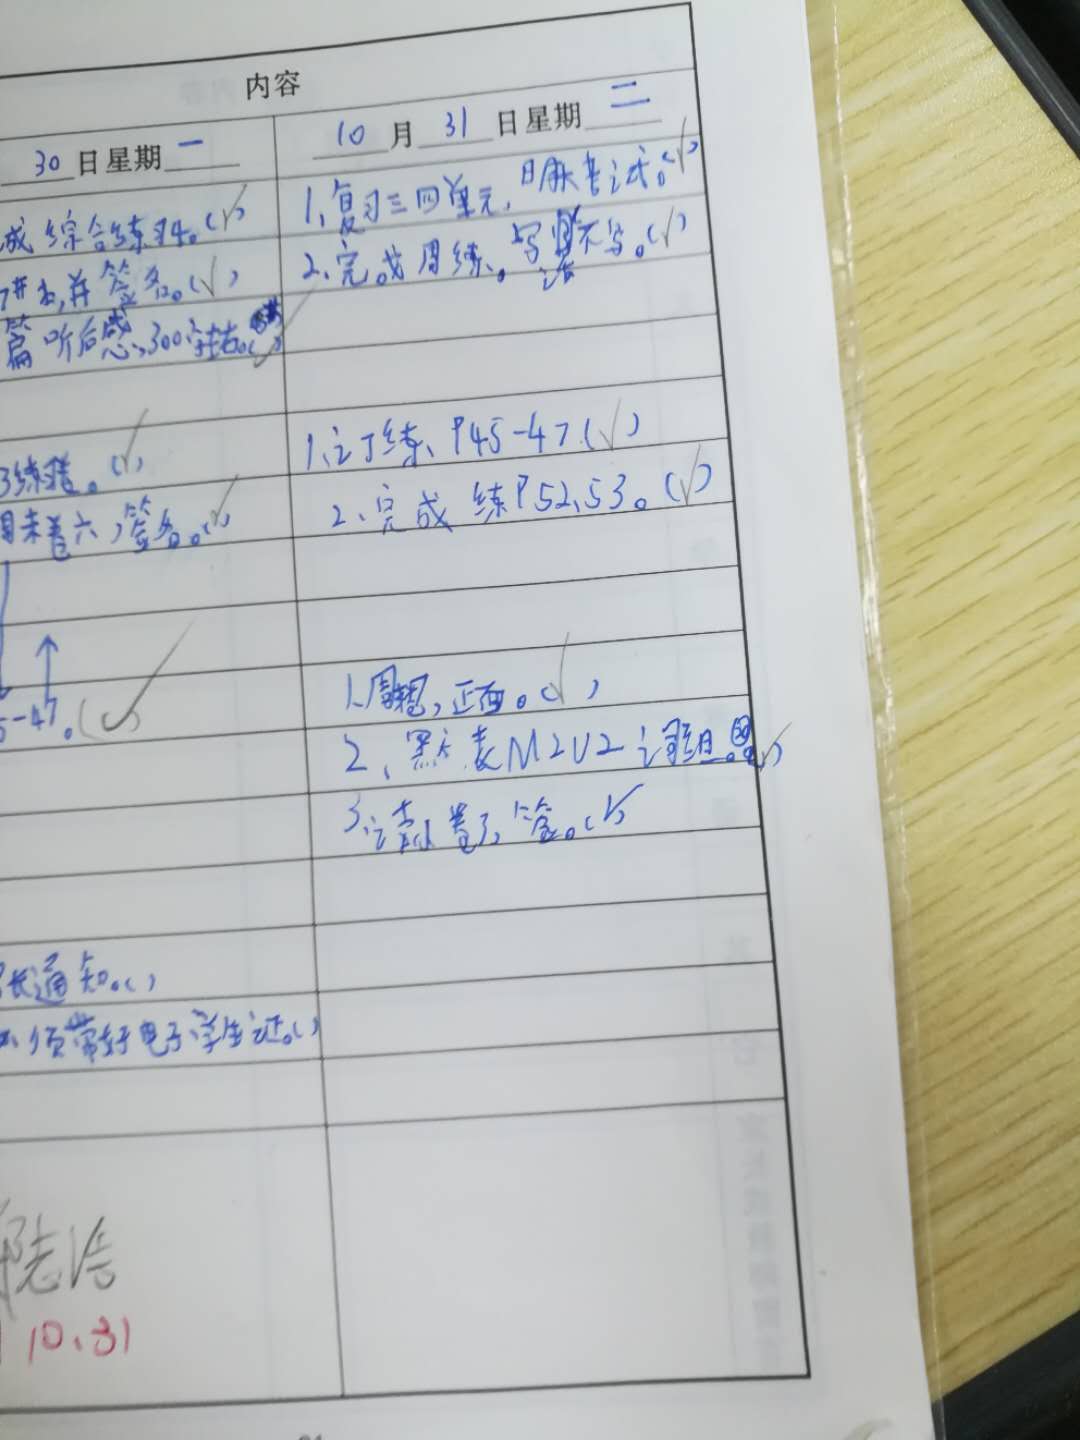 内容
30日星期一
成综合练习4。(√)
讲书,并签名。(√)
篇听后感,300字左右。(√)
练错。(√)
周末卷六,签名。(√)
5-47。(√)
长通知。( )
须带好电子学生证。( )
志浩
10.31
10月31日星期二
1、复习三四单元,明天考试。(√)
2、完成周练。写不写。(√)
1、订练、P45-47(√)
2、完成练P52、53。(√)
1、周,正面。(√)
2、默表M2U2词组。(√)
3、订卷3,签。(√)